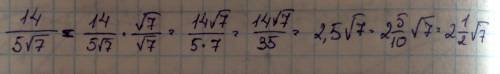 14/(5√7) = 14/(5√7) · √7/√7 = 14√7/(5·7) = 14√7/35 = 2,5√7 = 2 5/10 √7 = 2 1/2 √7